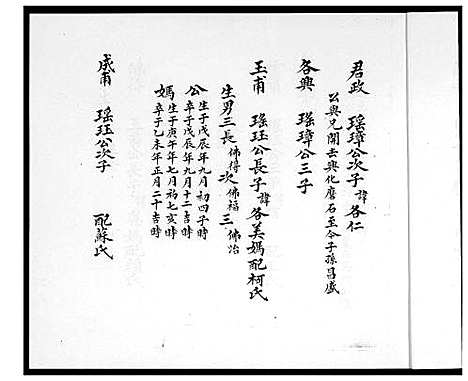 君政 瑤璋公次子 諱 各仁
公與兄開去興化磨石至今子孫昌盛
各興 瑤璋公三子
玉甫 瑤珏公長子 諱 各美媽配柯氏
生男三 長 佛得 次 佛福 三 佛治
公 生于戊辰年九月初四子時
卒于戊辰年九月十二吉時
媽 生于庚午年七月初七亥時
卒于乙未年正月二十吉時
成甫 瑤珏公次子 配蘇氏